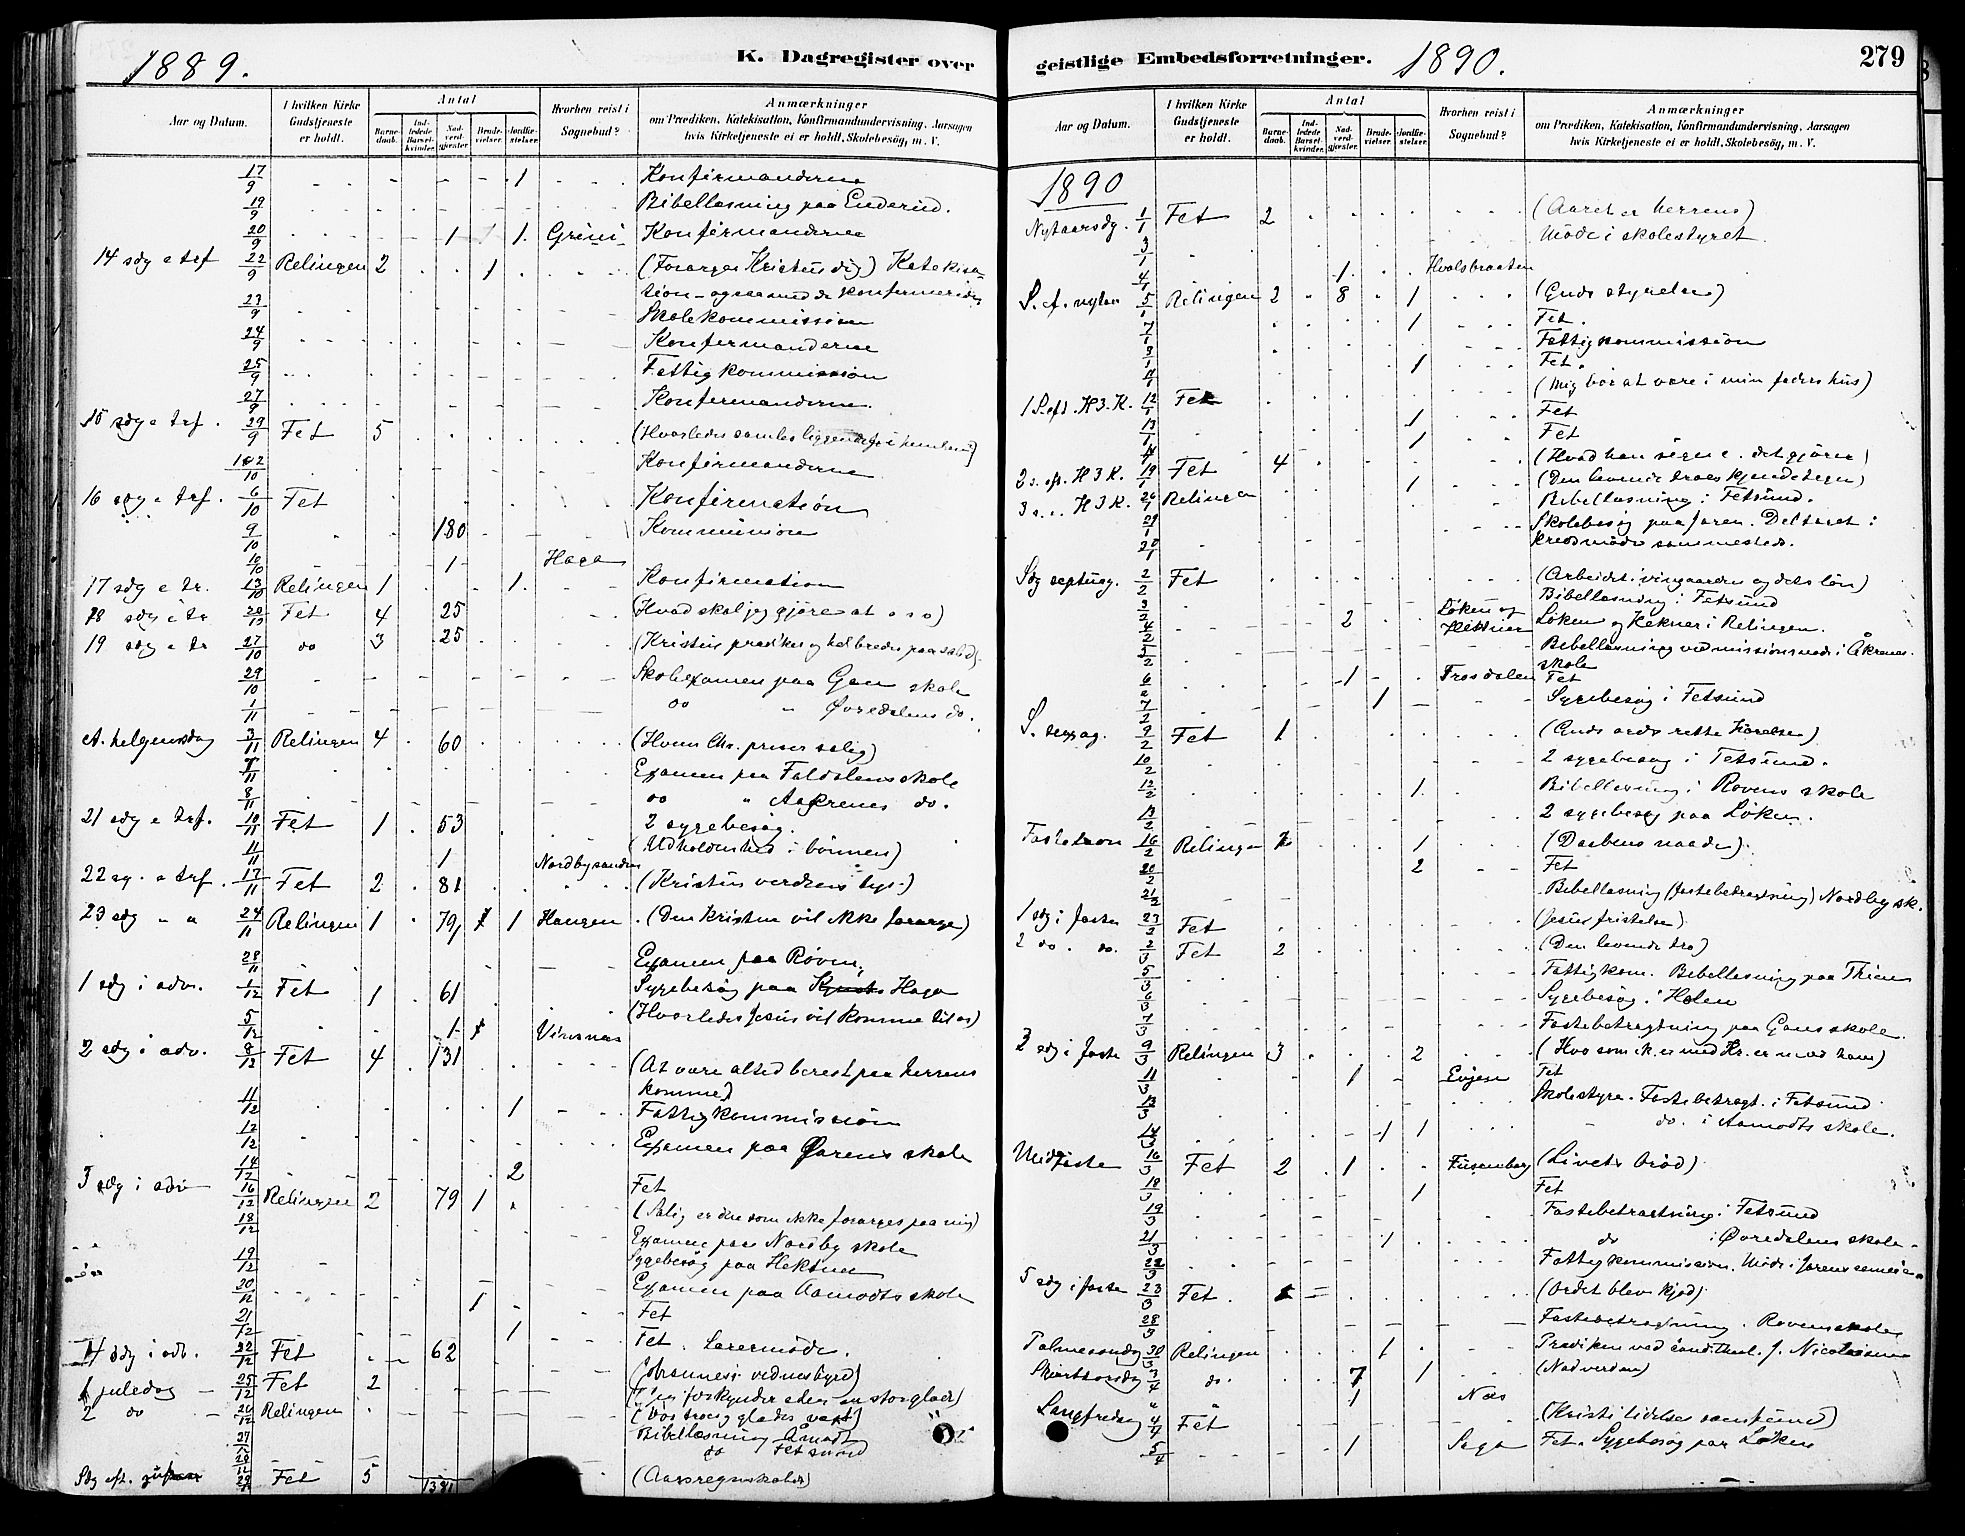 1889.
K. Dagregister over
Aar og Datum.
I hvilken Kirke Gudstjeneste er holdt.
Antal
Barnedaab.
Indledede Barselkvinder.
Nadverdgjester.
Brudevielser.
Jordfæstelser.
Hvorhen reist i Sognebud?
Anmærkninger
om Prædiken, Katekisation, Konfirmandundervisning, Aarsagen
hvis Kirketjeneste ei er holdt, Skolebesög, m. V.
17/9 1 Konfirmanderne
19/9 Bibellæsning paa Enderud.
20/9 1 1 Grini Konfirmanderne
14 sdg e trf 22/9 Relingen 2 1 (Forarger Kristus dig) Katekisa-
tion - ogsaa med de konfirmerede
23/9 Skolekommission
24/9 Konfirmanderne
25/9 Fattigkommission
27/9 Konfirmanderne.
15 sdg e trf. 29/9 Fet 5 (Hvorledes samles liggendefæ i himlen?)
1&2/10 Konfirmanderne
16 sdg e trf. 6/10 Fet Konfirmation
9/10 180 Kommunion
10/10 1 Haga
17 sdg e tr. 13/10 Relingen 1 1 Konfirmation
18 sdg e tr 20/10 Fet 4 25 (Hvad skal jeg gjøre at o s o)
19 sdg e tr 27/10 do 3 25 (Kristus prædiker og helbreder paa sabb.)
29/10 Skolexamen paa Gan skole
1/11 do " Øvredalens do.
A. helgensdag 3/11 Relingen 4 60 (Hvem Chr. priser salig)
7/11 Examen paa Faldalens skole
8/11 do " Aakrenes do.
21 sdg e trf. 10/11 Fet 1 53 2 sygebesøg.
(Udholdenhed i bønnen)
11/11 1 Nordbysanden
22 sg. e trf. 17/11 Fet 2 81 (Kristus verdens lys.)
23 sdg " " 24/11 Relingen 1 79 1 1 Haugen (Den kristne vil ikke forarge)
28/11 Examen paa Roven
1 sdg i adv. 1/12 Fet 1 61 Sygebesøg paa Haga
(Hvorledes Jesus vil komme til os)
5/12 1 Vinsnæs
2 sdg i adv. 8/12 Fet 4 131 (At være altid beredt paa herrens
komme)
11/12 1 Fattigkommission
12/12 Examen paa Garens skole
14/12 2 Fet
3 sdg i adv 16/12 Relingen 2 79 1 (Salig er den som ikke forarges paa mig)
18/12 Examen paa Nordby skole
19/12 Sygebesøg paa Heknee
20/12 1 Examen paa Aamodts skole
21/12 1 Fet
4 sdg i adv. 22/12 Fet 62 Fet. Lærermøde.
1 juledag 25/12 Fet 2 (Johannes's vidnesbyrd)
2 do 26/12 Relingen (Jeg forkynder eder en stor glæde)
27/12 Bibellæsning Åmodt
28/12 do Fetsund
Sdg eft. jul 29/12 Fet 5 1391 (Aarsregnskabet)
geistlige Embedsforretninger.
1890.
279
Aar og Datum.
I hvilken Kirke Gudstjeneste er holdt.
Antal
Barnedaab.
Indledede Barselkvinder.
Nadverdgjester.
Brudevielser.
Jordfæstelser.
Hvorhen reist i Sognebud?
Anmærkninger
om Prædiken, Katekisation, Konfirmandundervisning, Aarsagen
hvis Kirketjeneste ei er holdt, Skolebesög, m. V.
1890
Nytaarsdg. 1/1 Fet 2 (Aaret er herrens)
3/1 Møde i skolestyret
4/1 1 Hvalsbraaten
S. e. nytaar 5/1 Relingen 2 8 1 (Guds styrelse)
7/1 1 Fet.
9/1 Fattigkommission
11/1 1 Fet.
1 S. eft. H.3.K. 12/1 Fet (Mig bør at være i min faders hus)
13/1 1 Fet
1 Fet
2 s. eft. H 3 K. 19/1 Fet 4 (Hvad han siger e. det gjører)
3 s. " H 3 K. 26/1 Relingen 1 (Den levende troes kjendetegn)
Bibellæsning i Fetsund.
29/1 Skolebesøg paa Garen. Deltaget i
kredsmøde sammesteds.
Sdg septuag. 2/2 Fet (Arbeidet i vingaarden og dets løn)
3/2 Bibellæsning i Fetsund
4/2 2 Løken og Heknee Løken og Heknee i Relingen.
5/2 Bibellæsning ved missionsmøde i Åkrenes
skole
6/2 1 Frosdalen Fet
7/2 1 Sygebesøg i Fetsund
S. sexag. 9/2 Fet 1 (Guds ords rette hørelse)
10/2 2 sygebesøg i Fetsund.
12/2 1 Bibellæsning i Rovens skole
13/2 2 sygebesøg paa Løken.
Fastelavn 16/2 Relingen 1 (Daabens naade)
20/2 2 Fet
21/2 Bibellæsning (fastebetragtning) Nordby sk.
1 sdg i faste 23/2 Fet (Jesus fristelse)
2 do. do. 2/3 Fet 2 (Den levende tro)
5/3 Fattigkom. Bibellæsning paa Thien
6/3 Sygebesøg i Holen
7/3 Fastebetragtning paa Gans skole
3 sdg i faste 9/3 Relingen 3 2 (Hvo som ik. er med Kr. er mod ham)
11/3 1 Evjen Fet
13/3 Skolestyre. Fastebetragt. i Fetsund
14/3 1 1 do. i Aamodts skole.
Midfaste 16/3 Fet 2 1 Fusenberg (Livets brød)
18/3 1 Fet
19/3 Fastebetragtning i Fetsund
21/3 1 do i Øvredalens skole
22/3 Fattigkommission. Møde i
5 sdg i faste 23/3 Fet (Ordet blev kjød)
28/3 Fastebetragtning. Rovens skole
Palmesøndg 30/3 Relingen 1 Prædiken ved cand. theol. J. Nicolaisen
Skjærtorsdg 3/4 do. 7 1 (Nadverden)
" " 1 Næs
Langfredag 4/4 Fet (Kristi lidelses samfund)
5/4 1 Saga Fet. Sygebesøg paa Løken